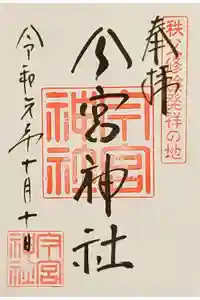 秩父修験発祥の地
奉拝
今宮神社
今宮神社
令和元年十月十日
今宮神社